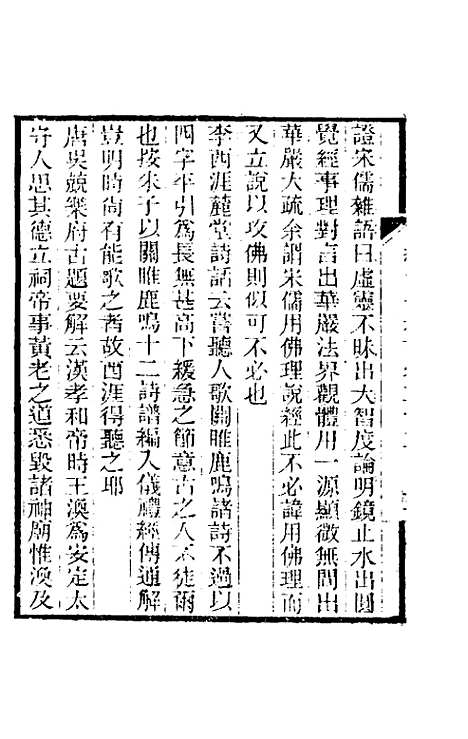 證宋儒雜語曰虛靈不昧出大智度論明鏡止水出圓
覺經事理對言出華嚴法界觀體用一源顯微無間出
華嚴大疏余謂宋儒用佛理說經此不必諱用佛理而
又立說以攻佛則似可不必也
李西涯麓堂詩話云嘗聽人歌關雎鹿鳴諸詩不過以
四字平引爲長無甚高下緩急之節意古之人不徒爾
也按朱子以關雎鹿鳴十二詩譜編入儀禮經傳通解
豈明時尚有能歌之者故西涯得聽之耶
唐吳兢樂府古題要解云漢孝和帝時王渙爲安定太
守人思其德立祠帝事黃老之道悉毀諸神廟惟渙及